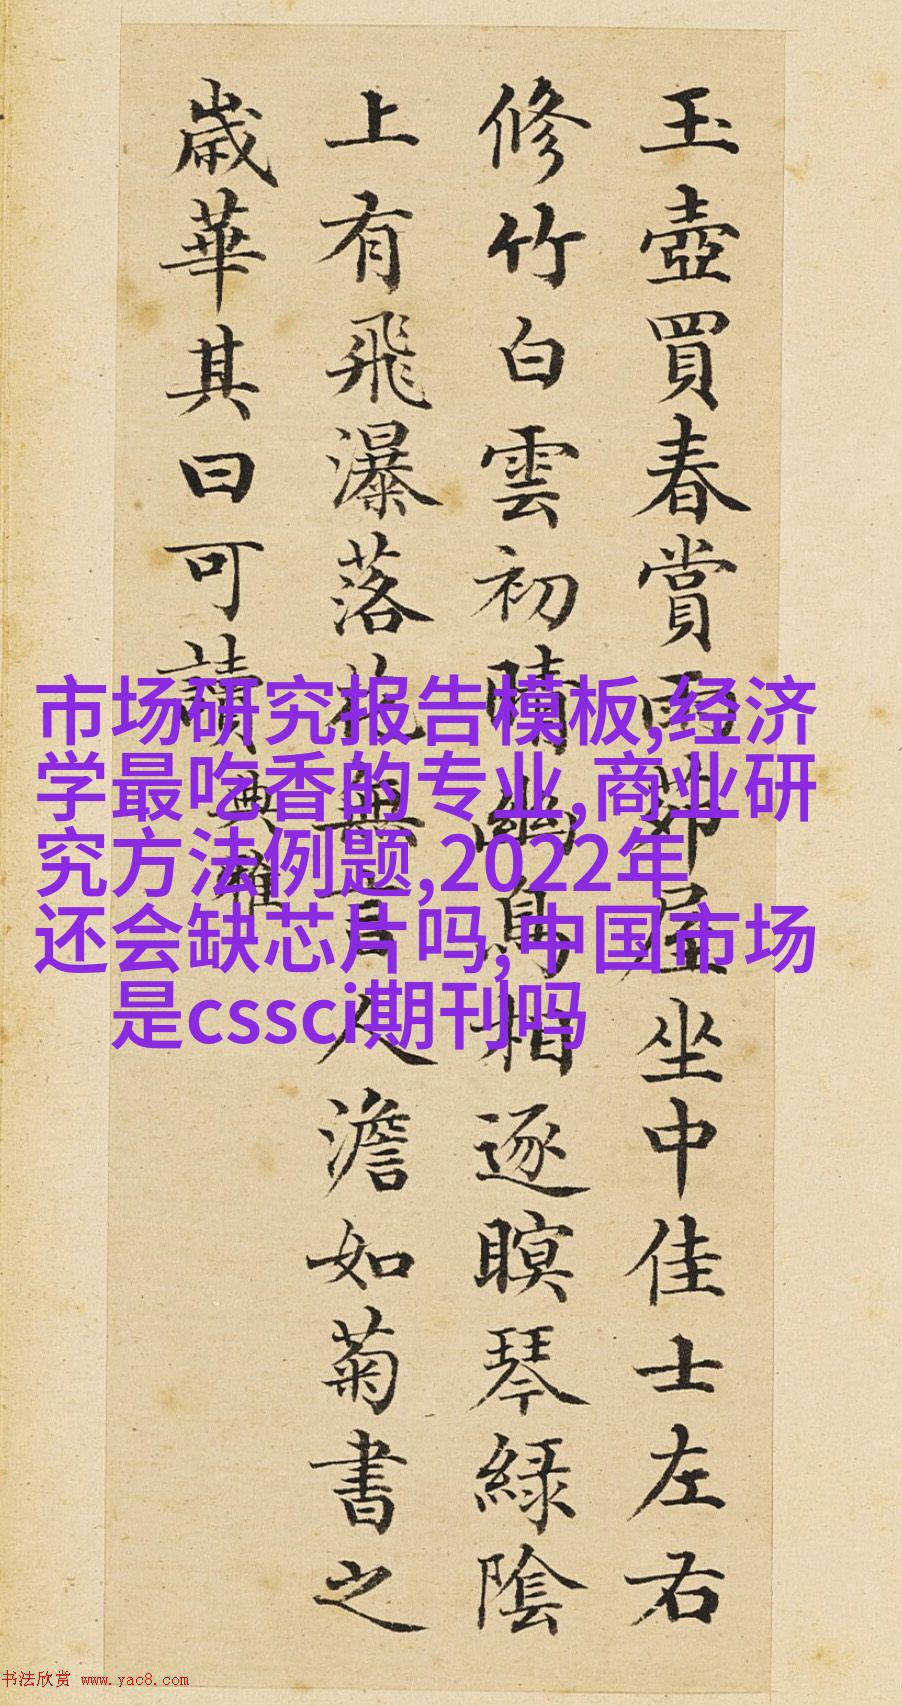 玉壺買春賞雨茆屋坐中佳士左右
修竹白雲初晴幽鳥相逐瞑琴綠陰
上有飛瀑落花無言人澹如菊書之
歲華其曰可讀典雅
市场研究报告模板,经济
学最吃香的专业,商业研
究方法例题,2022年
还会缺芯片吗,中国市场
是cssci期刊吗
书法欣赏 www.yac8.com